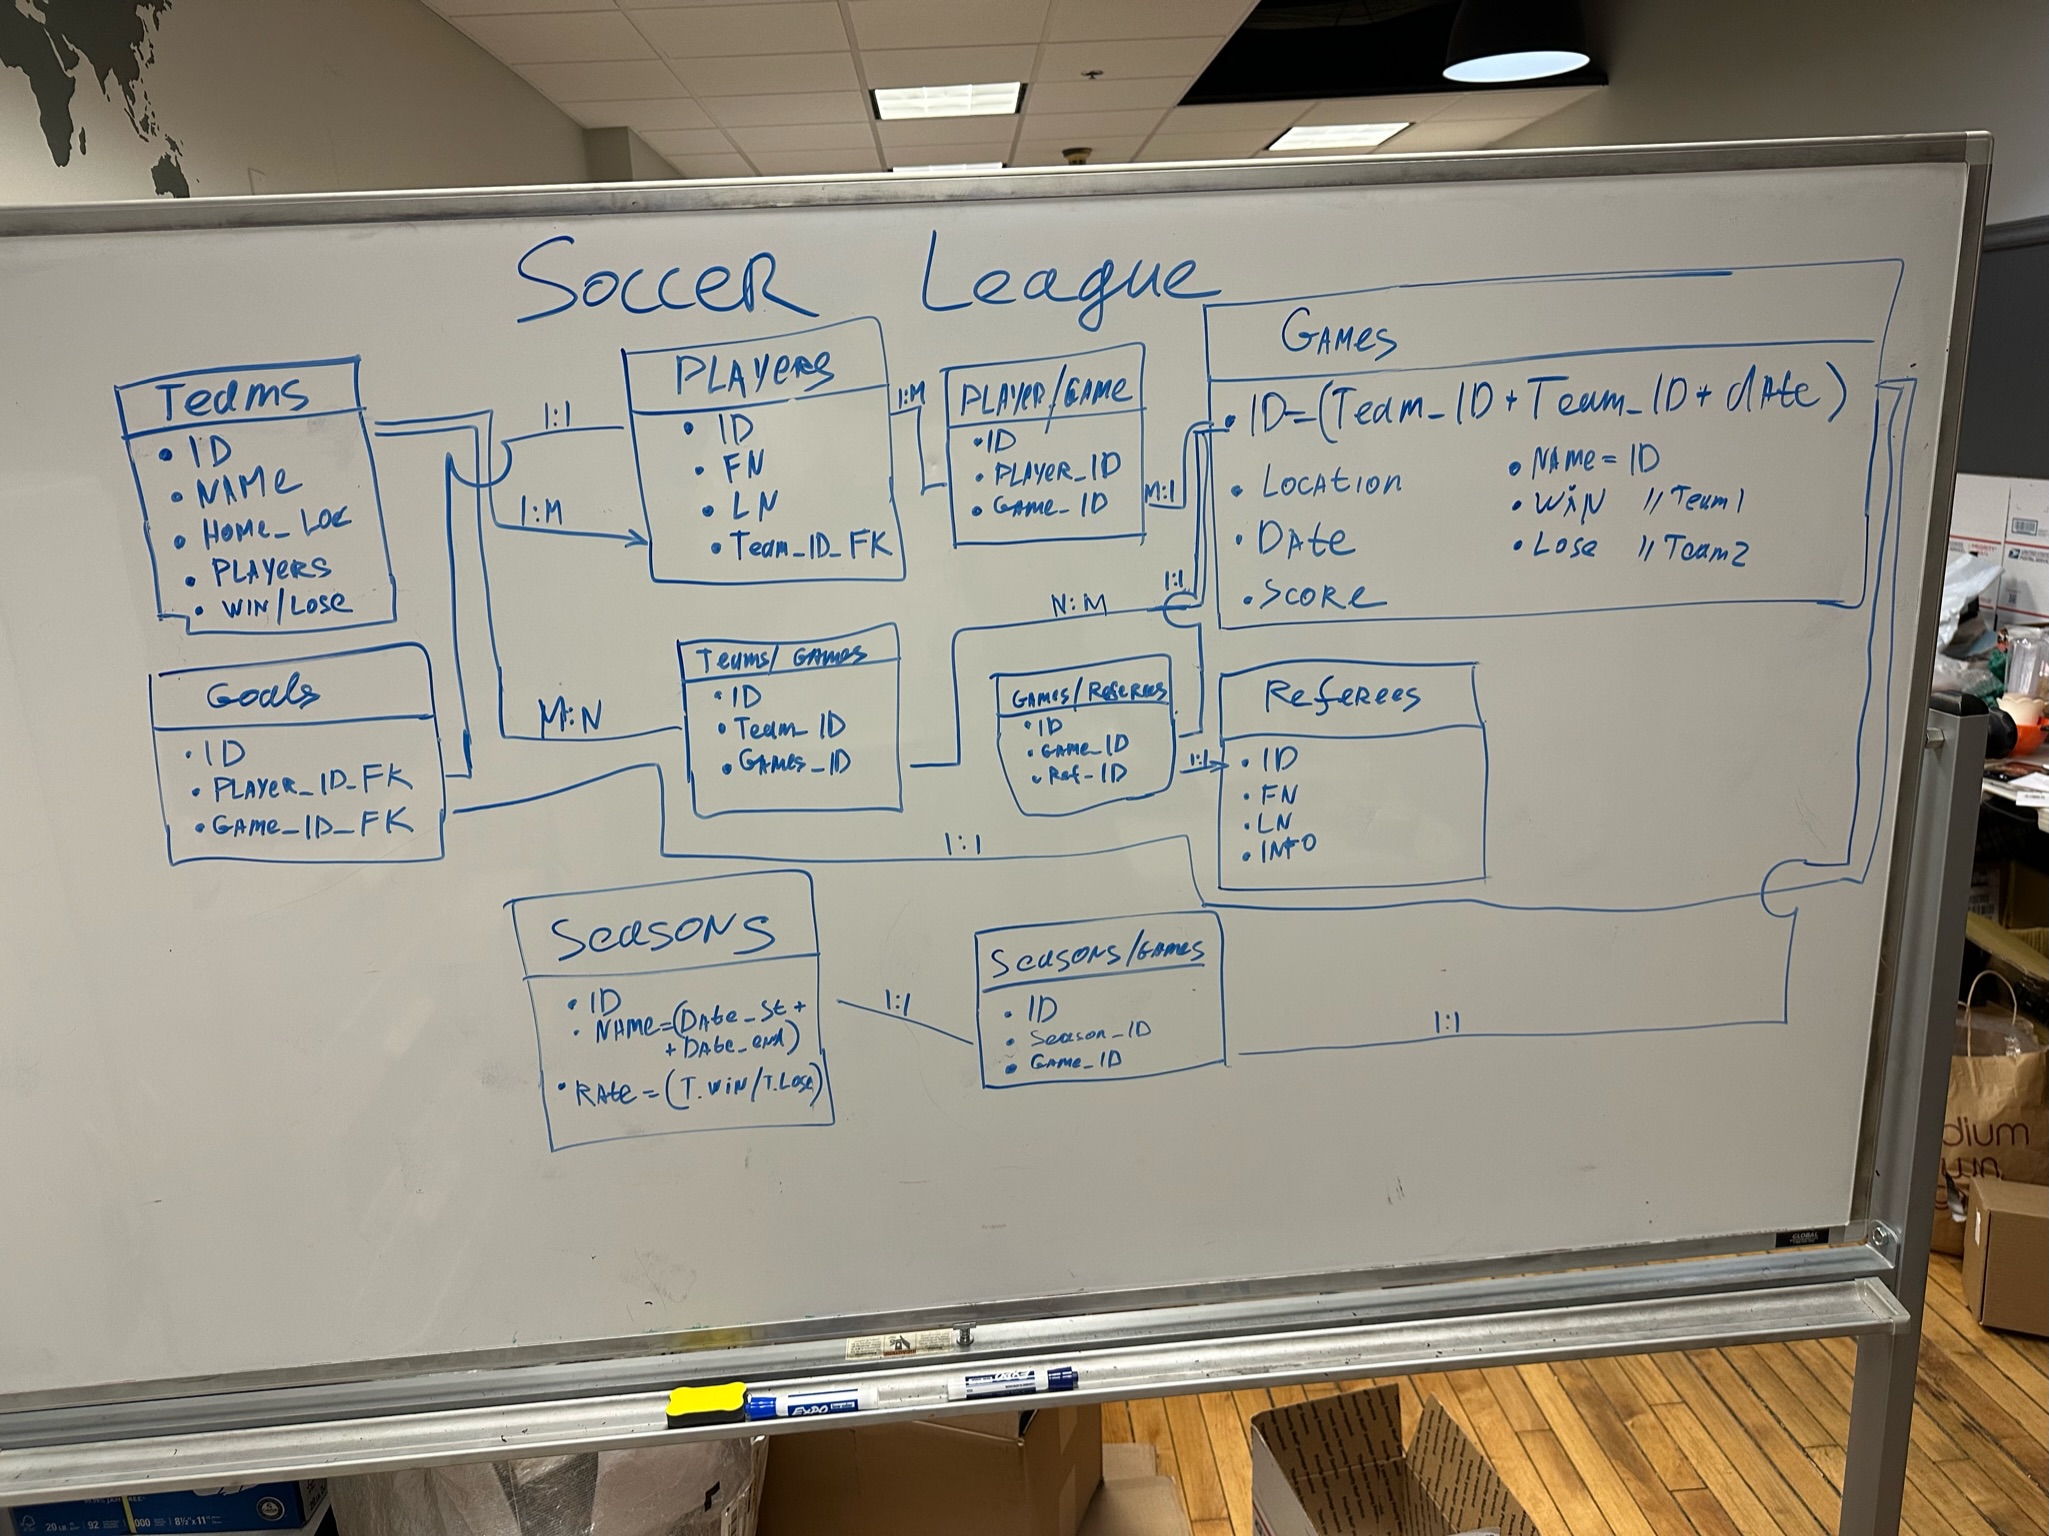 Soccer League
Teams
• ID
• Name
• Home_Loc
• Players
• Win/Lose
1:1
1:M
Players
• ID
• FN
• LN
• Team_ID_FK
1:M
Player/Game
• ID
• Player_ID
• Game_ID
M:1
Games
• ID=(Team_ID+Team_ID+date)
• Location
• Date
• Score
• Name=ID
• Win // Team1
• Lose // Team2
N:M
1:1
Goals
• ID
• Player_ID_FK
• Game_ID_FK
M:N
Teams/Games
• ID
• Team_ID
• Games_ID
Games/Referees
• ID
• Game_ID
• Ref_ID
1:1
Referees
• ID
• FN
• LN
• INFO
1:1
Seasons
• ID
• Name=(Date_St+
+Date_end)
• Rate=(T.Win/T.Lose)
1:1
Seasons/Games
• ID
• Season_ID
• Game_ID
1:1
GLOBAL
EXPO
dium
20 LB 92 8½"x11"